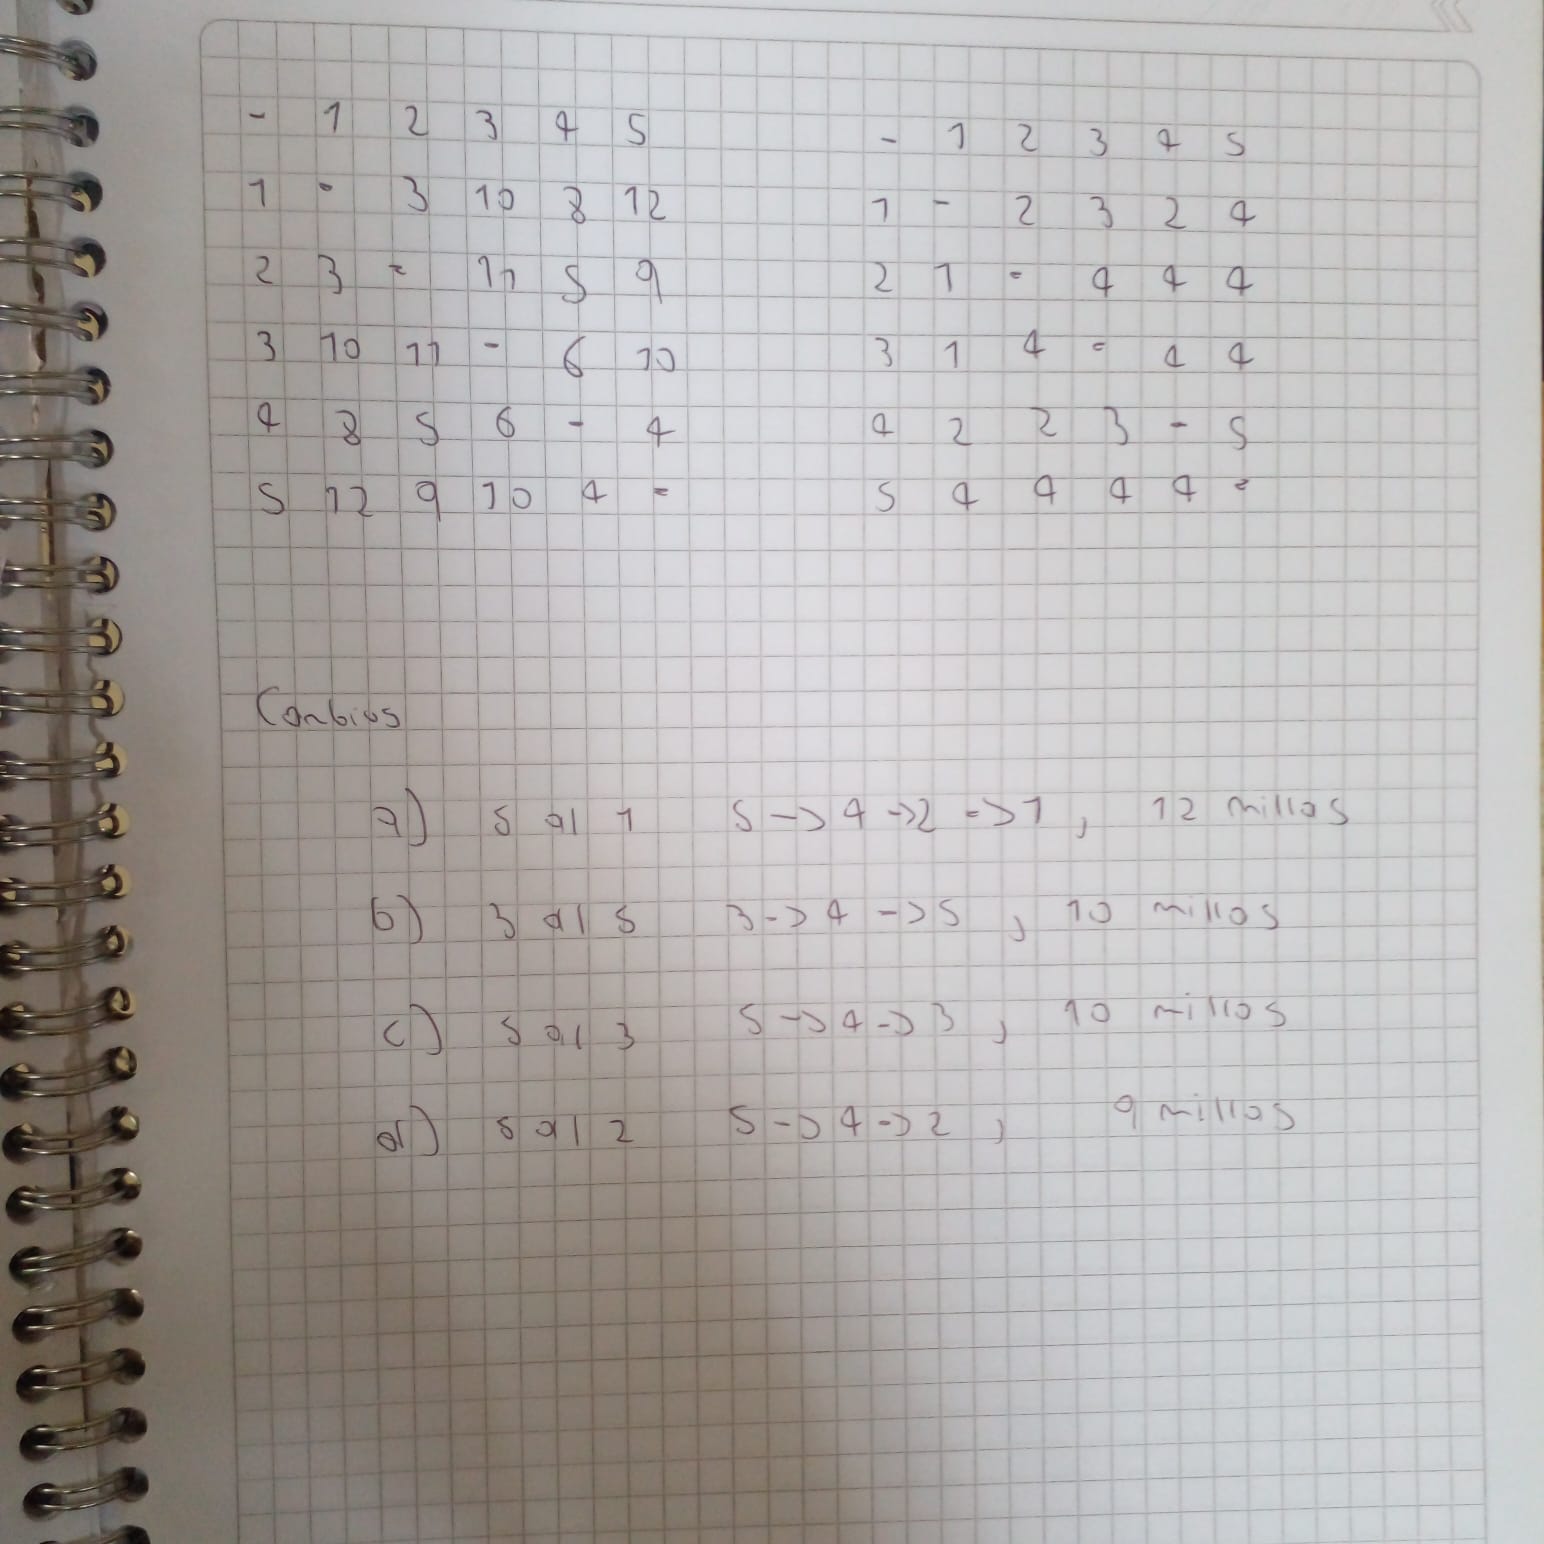 - 1 2 3 4 5
1 - 3 10 8 12
2 3 - 11 5 9
3 10 11 - 6 10
4 8 5 6 - 4
5 12 9 10 4 -
- 1 2 3 4 5
1 - 2 3 2 4
2 1 - 4 4 4
3 1 4 - 4 4
4 2 2 3 - 5
5 4 4 4 4 -
Cambios
a) 5 al 1 5 -> 4 -> 2 -> 1, 12 millas
b) 3 al 5 3 -> 4 -> 5, 10 millas
c) 5 al 3 5 -> 4 -> 3, 10 millas
d) 5 al 2 5 -> 4 -> 2, 9 millas